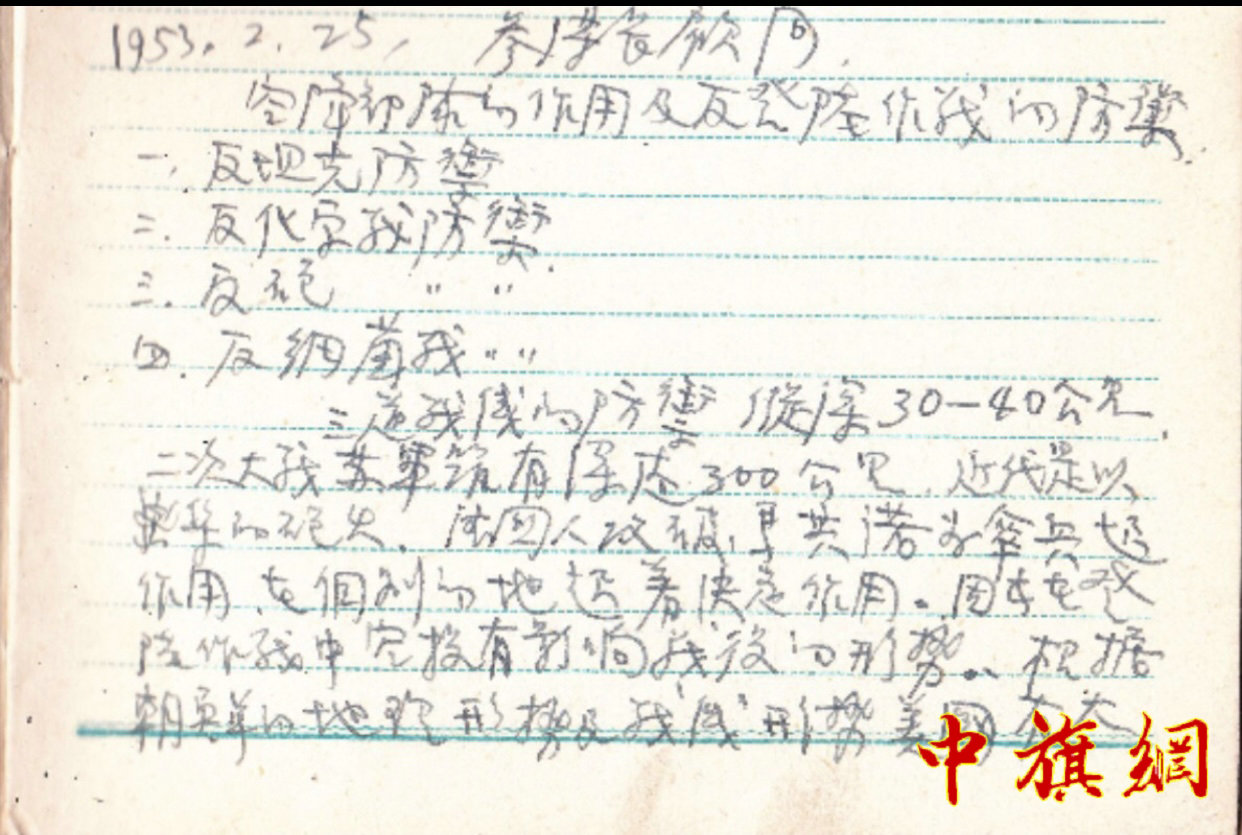 1953. 2. 25, 参谋长顾问
空降部队的作用及反登陆作战的防禦
一、反坦克防禦
二、反化学战防禦
三、反砲 〃 〃
四、反細菌战 〃 〃
三道战线的防禦 縱深30—40公里
二次大战苏軍筑有深达300公里. 近代是以
的砲火. 法国人攻 共諾 为伞兵起
作用, 在個别的地起着决定作用。因此在登
陆作战中空投有影响战役的形势.. 根据
朝鲜的地理形势及战线形势美國
中旗網